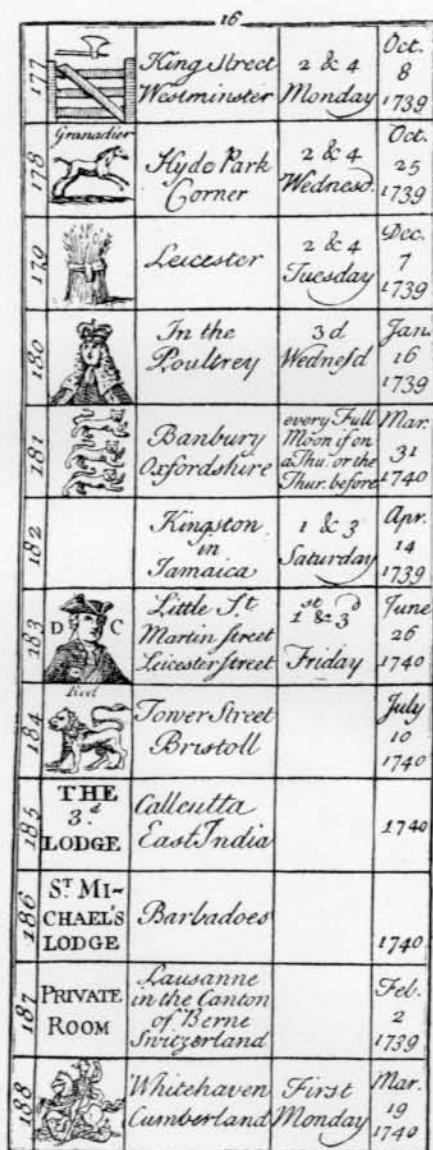 16
177
King street
Westminster
2 & 4
Monday
Oct.
8
1739
178
Granadier
Hyde Park
Corner
2 & 4
Wednesd.
Oct.
25
1739
179
Leicester
2 & 4
Tuesday
Dec.
7
1739
180
In the
Poultrey
3d
Wednesd
Jan.
16
1739
181
Banbury
Oxfordshire
every Full
Moon if on
a Thu. or the
Thur. before
Mar.
31
1740
182
Kingston
in
Jamaica
1 & 3
Saturday
Apr.
14
1739
183
D C
Little St.
Martin street
Leicester street
1st & 3d
Friday
June
26
1740
184
Red
Tower Street
Bristoll
July
10
1740
185
THE
3d.
LODGE
Callcutta
East India
1740
186
ST. MI-
CHAEL'S
LODGE
Barbadoes
1740
187
PRIVATE
ROOM
Lausanne
in the Canton
of Berne
Switzerland
Feb.
2
1739
188
Whitehaven
Cumberland
First
Monday
Mar.
19
1740